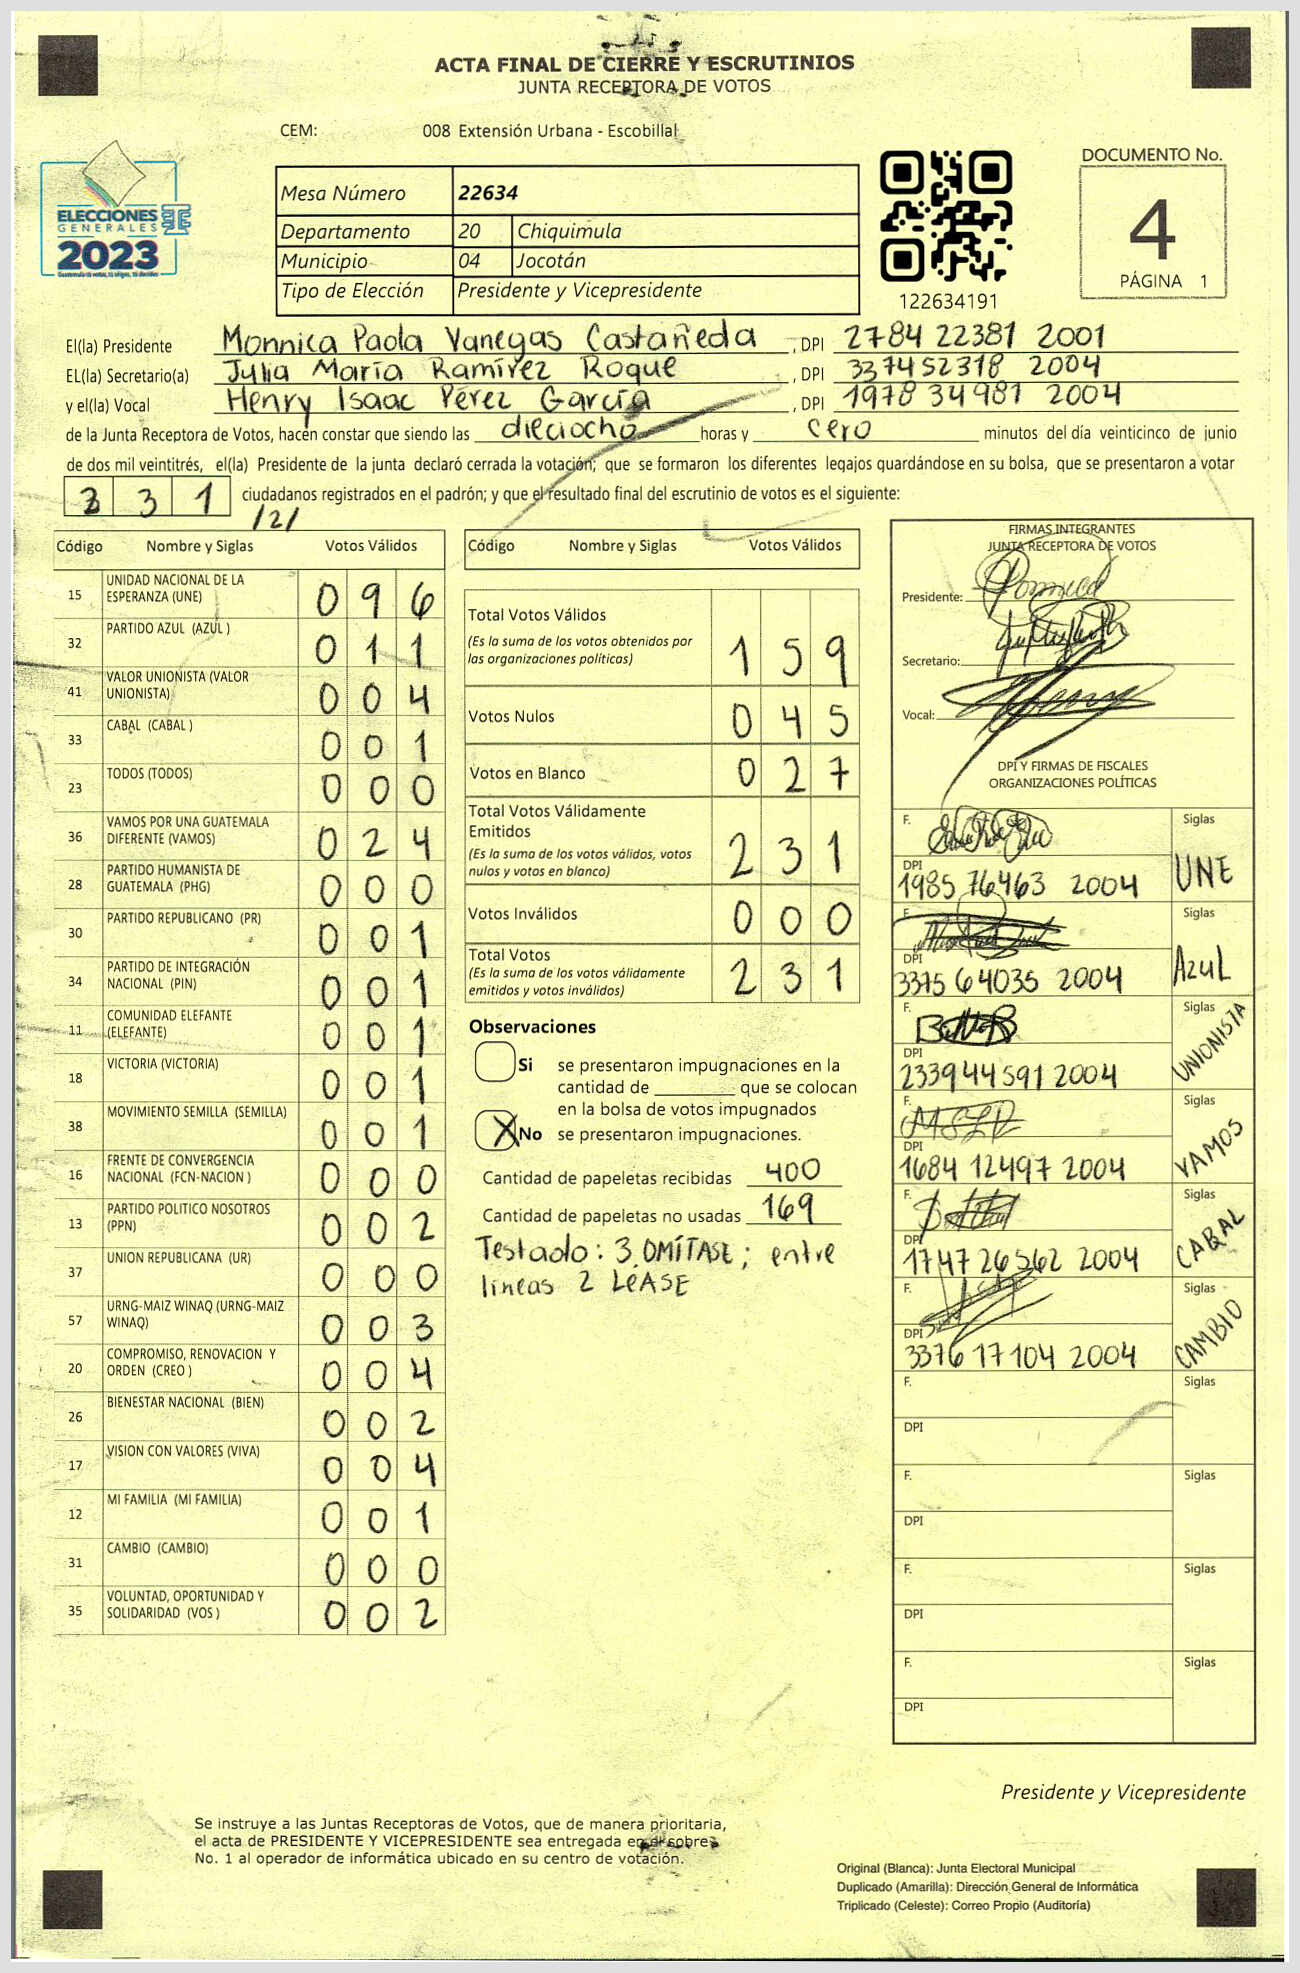 ACTA FINAL DE CIERRE Y ESCRUTINIOS
JUNTA RECEPTORA DE VOTOS
CEM: 008 Extensión Urbana - Escobillal
ELECCIONES
GENERALES
2023
Mesa Número 22634
Departamento 20 Chiquimula
Municipio 04 Jocotán
Tipo de Elección Presidente y Vicepresidente
122634191
DOCUMENTO No.
4
PÁGINA 1
El(la) Presidente Monnica Paola Vanegas Castañeda , DPI 2784 22381 2001
EL(la) Secretario(a) Julia María Ramírez Roque , DPI 337452318 2004
y el(la) Vocal Henry Isaac Pérez García , DPI 1978 34981 2004
de la Junta Receptora de Votos, hacen constar que siendo las dieciocho horas y cero minutos del día veinticinco de junio
de dos mil veintitrés, el(la) Presidente de la junta declaró cerrada la votación; que se formaron los diferentes legajos guardándose en su bolsa, que se presentaron a votar
3 3 1 ciudadanos registrados en el padrón; y que el resultado final del escrutinio de votos es el siguiente:
/2/
Código Nombre y Siglas Votos Válidos
15 UNIDAD NACIONAL DE LA ESPERANZA (UNE) 0 9 6
32 PARTIDO AZUL (AZUL ) 0 1 1
41 VALOR UNIONISTA (VALOR UNIONISTA) 0 0 4
33 CABAL (CABAL ) 0 0 1
23 TODOS (TODOS) 0 0 0
36 VAMOS POR UNA GUATEMALA DIFERENTE (VAMOS) 0 2 4
28 PARTIDO HUMANISTA DE GUATEMALA (PHG) 0 0 0
30 PARTIDO REPUBLICANO (PR) 0 0 1
34 PARTIDO DE INTEGRACIÓN NACIONAL (PIN) 0 0 1
11 COMUNIDAD ELEFANTE (ELEFANTE) 0 0 1
18 VICTORIA (VICTORIA) 0 0 1
38 MOVIMIENTO SEMILLA (SEMILLA) 0 0 1
16 FRENTE DE CONVERGENCIA NACIONAL (FCN-NACION ) 0 0 0
13 PARTIDO POLITICO NOSOTROS (PPN) 0 0 2
37 UNION REPUBLICANA (UR) 0 0 0
57 URNG-MAIZ WINAQ (URNG-MAIZ WINAQ) 0 0 3
20 COMPROMISO, RENOVACION Y ORDEN (CREO ) 0 0 4
26 BIENESTAR NACIONAL (BIEN) 0 0 2
17 VISION CON VALORES (VIVA) 0 0 4
12 MI FAMILIA (MI FAMILIA) 0 0 1
31 CAMBIO (CAMBIO) 0 0 0
35 VOLUNTAD, OPORTUNIDAD Y SOLIDARIDAD (VOS ) 0 0 2
Código Nombre y Siglas Votos Válidos
Total Votos Válidos
(Es la suma de los votos obtenidos por
las organizaciones políticas) 1 5 9
Votos Nulos 0 4 5
Votos en Blanco 0 2 7
Total Votos Válidamente
Emitidos
(Es la suma de los votos válidos, votos
nulos y votos en blanco) 2 3 1
Votos Inválidos 0 0 0
Total Votos
(Es la suma de los votos válidamente
emitidos y votos inválidos) 2 3 1
Observaciones
Si se presentaron impugnaciones en la
cantidad de ________ que se colocan
en la bolsa de votos impugnados
X No se presentaron impugnaciones.
Cantidad de papeletas recibidas 400
Cantidad de papeletas no usadas 169
Testado: 3, OMÍTASE; entre
lineas 2 LeASE
FIRMAS INTEGRANTES
JUNTA RECEPTORA DE VOTOS
Presidente:
Secretario:
Vocal:
DPI Y FIRMAS DE FISCALES
ORGANIZACIONES POLÍTICAS
F. Siglas
DPI 1985 76463 2004 UNE
F. Siglas
DPI 3375 64035 2004 AZUL
F. Siglas
DPI 2339 44591 2004 UNIONISTA
F. Siglas
DPI 1684 12497 2004 VAMOS
F. Siglas
DPI 1747 26562 2004 CABAL
F. Siglas
DPI 3376 17104 2004 CAMBIO
F. Siglas
DPI
F. Siglas
DPI
F. Siglas
DPI
F. Siglas
DPI
Presidente y Vicepresidente
Se instruye a las Juntas Receptoras de Votos, que de manera prioritaria,
el acta de PRESIDENTE Y VICEPRESIDENTE sea entregada en el sobre
No. 1 al operador de informática ubicado en su centro de votación.
Original (Blanca): Junta Electoral Municipal
Duplicado (Amarilla): Dirección General de Informática
Triplicado (Celeste): Correo Propio (Auditoría)